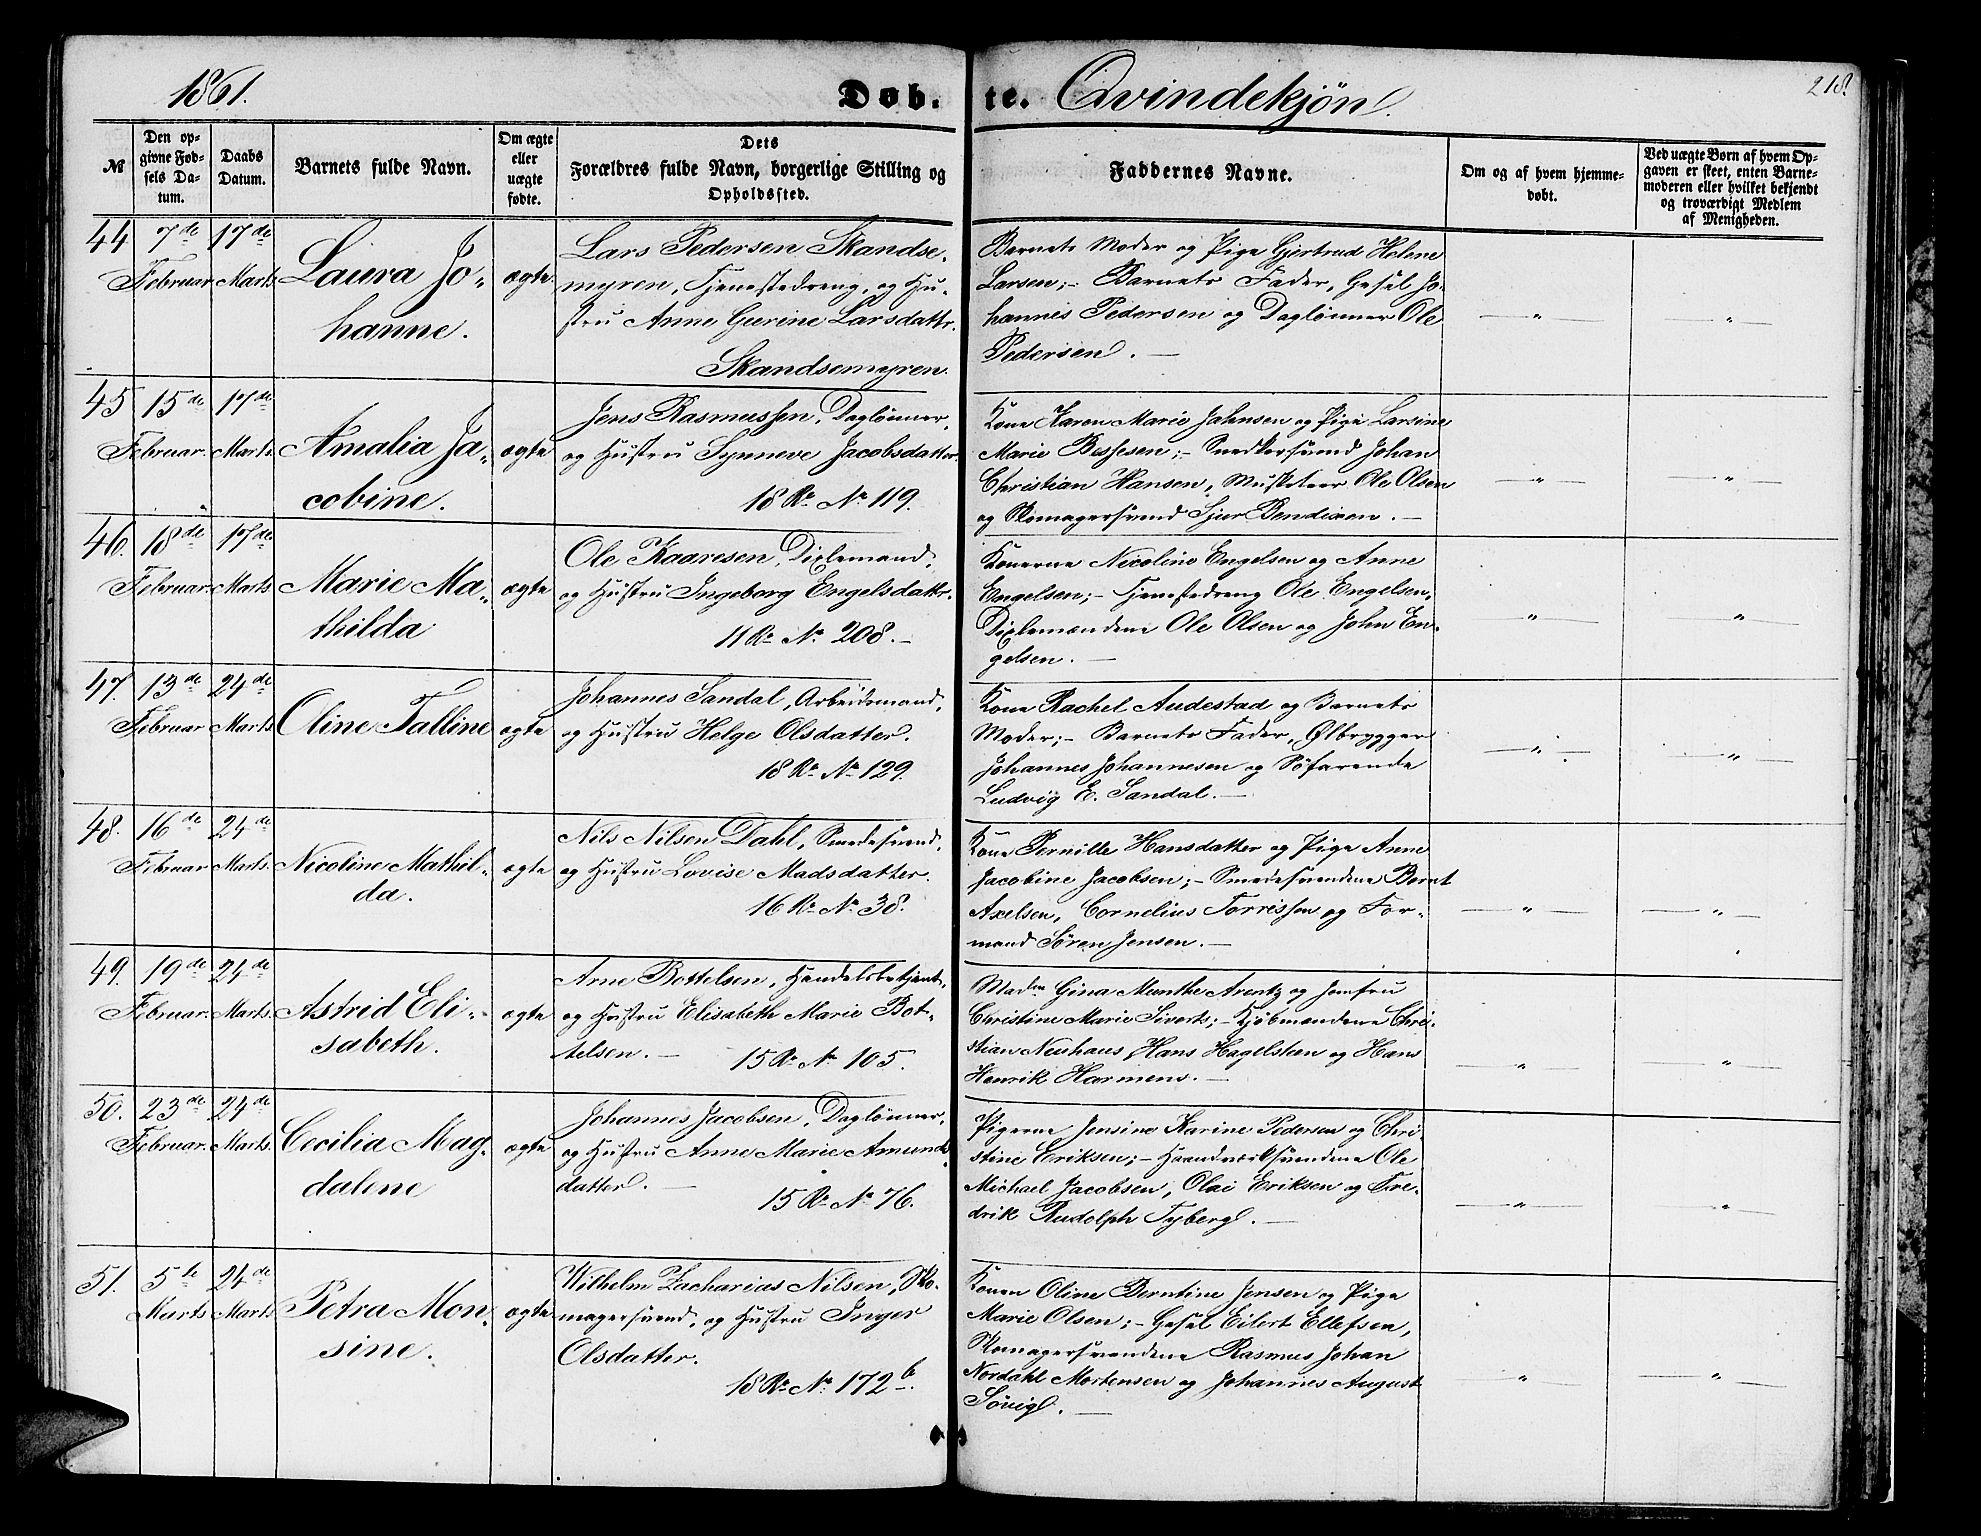 1861.
Døb-
te. Qvindekjøn.
218.
№
Den op-
givne Fød-
sels Da-
tum.
Daabs
Datum.
Barnets fulde Navn.
Om ægte
eller
uægte
fødte.
Dets
Forældres fulde Navn, borgerlige Stilling og
Opholdssted.
Faddernes Navne.
Om og af hvem hjemme-
døbt.
Ved uægte Børn af hvem Op-
gaven er skeet, enten Barne-
moderen eller hvilket bekjendt
og troværdigt Medlem
af Menigheden.
44 7de Februar 17de Marts.
Laura Jo-
hanne.
ægte.
Lars Pedersen Skandse-
myren, Tjenestedreng, og Hu-
stru Anne Gurine Larsdattr.
Skandsemyren.
Barnets Moder og Pige Gjertrud Helene
Larsen; - Barnets Fader, Gesel Jo-
hannes Pedersen og Daglønner Ole
Pedersen. —
— " —
— " —
45 15de Februar. 17de Marts.
Amalia Ja-
cobine.
ægte
Jens Rasmussen, Daglønner,
og Hustru Synneve Jacobsdatter.
18 Re № 119.
Kone Karen Marie Jahnsen og Pige Larsine
Marie Bessesen; - Snedkersvend Johan
Christian Hansen, Musketeer Ole Olsen
og Skomagersvend Sjur Bendixen. —
— " —
— " —
46. 18de Februar. 17de Marts.
Marie Ma-
thilda
ægte
Ole Kaaresen, Dixlemand,
og Hustru Ingeborg Engelsdattr.
11 Re № 208. —
Konerne Nicoline Engelsen og Anne
Engelsen; - Tjenestedreng Ole Engelsen,
Dixlemændene Ole Olsen og John En-
gelsen. —
— " —
— " —
47. 13de Februar 24de Marts.
Oline Talline
ægte
Johannes Sandal, Arbeidsmand,
og Hustru Helge Olsdatter.
18 Re № 129.
Kone Rachel Audestad og Barnets
Moder; - Barnets Fader, Ølbrygger
Johannes Johannesen og Søfarende
Ludvig E. Sandal. —
— " —
— " —
48. 16de Februar 24de Marts.
Nicoline Mathil-
da.
ægte
Nils Nilsen Dahl, Smedesvend,
og Hustru Lovise Madsdatter.
16 Re № 38.
Kone Pernille Hansdatter og Pige Anne
Jacobine Jacobsen; - Smedesvendene Bernt
Axelsen, Cornelius Torrissen og For-
mand Søren Jensen. —
— " —
— " —
49. 19de Februar. 24de Marts.
Astrid Eli-
sabeth.
ægte
Arne Bottelsen, Handelsbetjent,
og Hustru Elisabeth Marie Bot-
telsen. — 15 Re № 105.
Madm Gina Munthe Arentz og Jomfru
Christine Marie Siverts; - Kjøbmændene Chri-
stian Neuhaus, Hans Hagelsteen og Hans
Henrik Harmens. —
— " —
— " —
50. 23de Februar. 24de Marts.
Cecilia Mag-
dalene
ægte
Johannes Jacobsen, Daglønner,
og Hustru Anne Marie Amunds-
datter. —
15 Re № 76.
Pigerne Jensine Karine Pedersen og Chri-
stine Eriksen; - Haandværksvendene Ole
Michael Jacobsen, Olai Eriksen og Fre-
drik Rudolph Tyberg. —
— " —
— " —
51. 5te Marts 24de Marts.
Petra Mon-
sine.
ægte
Wilhelm Zacharias Nilsen, Sko-
magersvend, og Hustru Inger
Olsdatter.
18 Re № 172 b.
Konen Oline Berntine Jensen og Pige
Marie Olsen; - Gesel Eilert Ellefsen,
Skomagersvendene Rasmus Johan
Nordahl Mortensen og Johannes August
Søvig. —
— " —
— " —